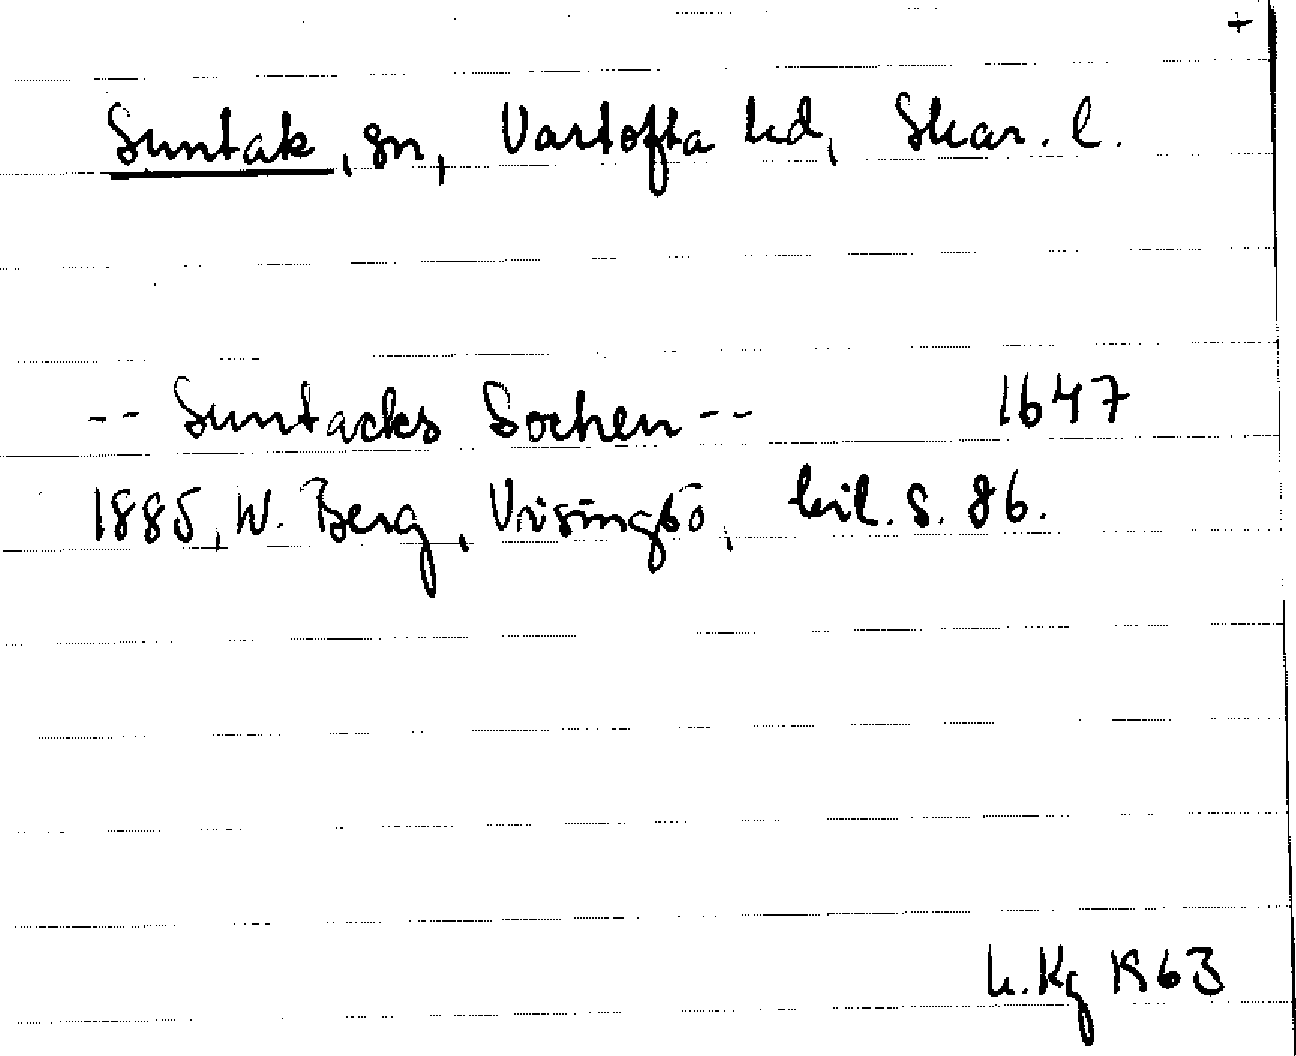 +
Suntak, sn, Vartofta hd, Skar. l.
-- Suntacks Sochen -- 1647
1885, W. Berg, Visingsö, bil. s. 86.
K. Kg 1963